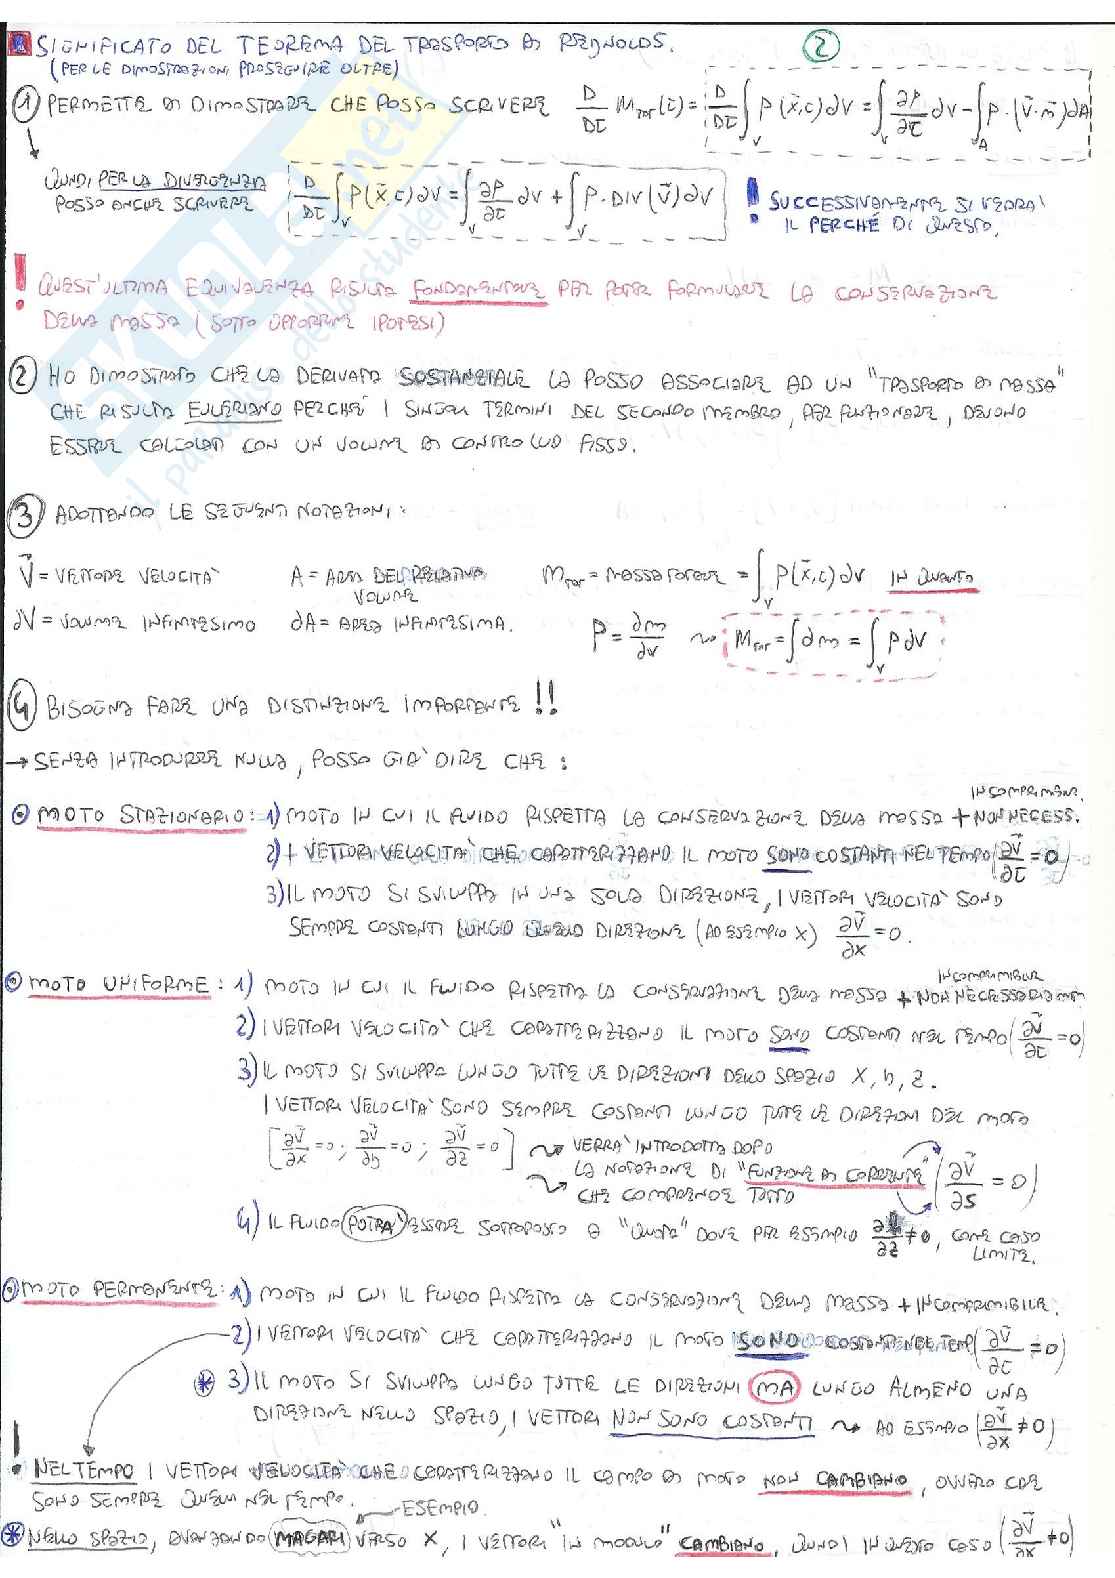 SIGNIFICATO DEL TEOREMA DEL TRASPORTO DI REYNOLDS. 2
(PER LE DIMOSTRAZIONI PROSEGUIRE OLTRE)
1 PERMETTE DI DIMOSTRARE CHE POSSO SCRIVERE D/Dτ M_TOT(τ) = D/Dτ ∫_V ρ(x̄,τ)∂V = ∫_V ∂ρ/∂τ ∂V - ∫_A ρ·(v̄·n̄)∂A
QUINDI PER LA DIVERGENZA
POSSO ANCHE SCRIVERE D/Dτ ∫_V ρ(x̄,τ)∂V = ∫_V ∂ρ/∂τ ∂V + ∫_V ρ·DIV(v̄)∂V
! SUCCESSIVAMENTE SI VEDRA'
IL PERCHÉ DI QUESTO.
! QUEST'ULTIMA EQUIVALENZA RISULTA FONDAMENTALE PER POTER FORMULARE LA CONSERVAZIONE
DELLA MASSA (SOTTO OPPORTUNE IPOTESI)
2 HO DIMOSTRATO CHE LA DERIVATA SOSTANZIALE LA POSSO ASSOCIARE AD UN "TRASPORTO DI MASSA"
CHE RISULTA EULERIANO PERCHÉ I SINGOLI TERMINI DEL SECONDO MEMBRO, PER FUNZIONARE, DEVONO
ESSERE CALCOLATI CON UN VOLUME DI CONTROLLO FISSO.
3 ADOTTANDO LE SEGUENTI NOTAZIONI:
V̄ = VETTORE VELOCITA' A = AREA DEL RELATIVO VOLUME M_TOT = MASSA TOTALE = ∫_V ρ(x̄,τ)∂V IN QUANTO
∂V = VOLUME INFINITESIMO ∂A = AREA INFINITESIMA. ρ = ∂m/∂V ⇝ M_TOT = ∫∂m = ∫_V ρ∂V
4 BISOGNA FARE UNA DISTINZIONE IMPORTANTE!!
→ SENZA INTRODURRE NULLA, POSSO GIA' DIRE CHE:
INCOMPRIMIBIL.
MOTO STAZIONARIO: 1) MOTO IN CUI IL FLUIDO RISPETTA LA CONSERVAZIONE DELLA MASSA + NON NECESS.
2) I VETTORI VELOCITA' CHE CARATTERIZZANO IL MOTO SONO COSTANTI NEL TEMPO (∂V̄/∂τ = 0)
3) IL MOTO SI SVILUPPA IN UNA SOLA DIREZIONE, I VETTORI VELOCITA' SONO
SEMPRE COSTANTI LUNGO QUELLA DIREZIONE (AD ESEMPIO X) ∂V̄/∂x = 0.
INCOMPRIMIBILE
MOTO UNIFORME: 1) MOTO IN CUI IL FLUIDO RISPETTA LA CONSERVAZIONE DELLA MASSA + NON NECESSARIAMENT
2) I VETTORI VELOCITA' CHE CARATTERIZZANO IL MOTO SONO COSTANTI NEL TEMPO (∂V̄/∂τ = 0)
3) IL MOTO SI SVILUPPA LUNGO TUTTE LE DIREZIONI DELLO SPAZIO X, Y, Z.
I VETTORI VELOCITA' SONO SEMPRE COSTANTI LUNGO TUTTE LE DIREZIONI DEL MOTO
[∂V̄/∂x = 0; ∂V̄/∂y = 0; ∂V̄/∂z = 0] ⇝ VERRA' INTRODOTTA DOPO
LA NOTAZIONE DI "FUNZIONE DI CORRENTE" (∂V̄/∂s = 0)
⇝ CHE COMPRENDE TUTTO
4) IL FLUIDO POTRA' ESSERE SOTTOPOSTO A "QUOTA" DOVE PER ESEMPIO ≠ 0, COME CASO
LIMITE.
MOTO PERMANENTE: 1) MOTO IN CUI IL FLUIDO RISPETTA LA CONSERVAZIONE DELLA MASSA + INCOMPRIMIBILE.
2) I VETTORI VELOCITA' CHE CARATTERIZZANO IL MOTO SONO COSTANTI NEL TEMP (∂V̄/∂τ = 0)
* 3) IL MOTO SI SVILUPPA LUNGO TUTTE LE DIREZIONI MA LUNGO ALMENO UNA
DIREZIONE NELLO SPAZIO, I VETTORI NON SONO COSTANTI ⇝ AD ESEMPIO (∂V̄/∂x ≠ 0)
! NEL TEMPO I VETTORI VELOCITA' CHE CARATTERIZZANO IL CAMPO DI MOTO NON CAMBIANO, OVVERO CHE
SONO SEMPRE QUELLI NEL TEMPO. ESEMPIO.
* NELLO SPAZIO, AVANZANDO MAGARI VERSO X, I VETTORI "IN MODULO" CAMBIANO, QUINDI IN QUESTO CASO (∂V̄/∂x ≠ 0)
SKUOLA.net
il paradiso dello studente